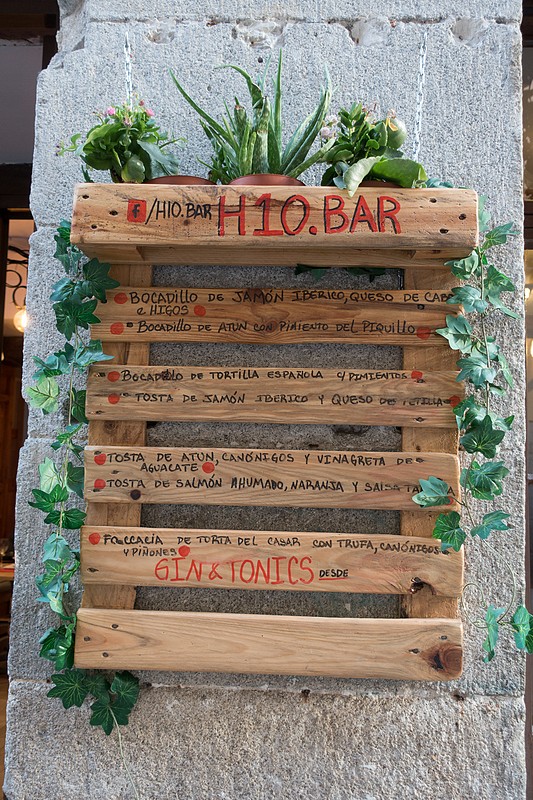 f/H10.BAR H10.BAR
BOCADILLO DE JAMÓN IBERICO, QUESO DE CAB
e HIGOS
BOCADILLO DE ATUN CON PIMIENTO DEL PIQUILLO
BOCADILLO DE TORTILLA ESPAÑOLA C/PIMIENTOS
TOSTA DE JAMÓN IBERICO Y QUESO DE TETILLA
TOSTA DE ATUN, CANÓNIGOS Y VINAGRETA DE
AGUACATE
TOSTA DE SALMÓN AHUMADO, NARANJA Y SALSA
FOCCACIA DE TORTA DEL CASAR CON TRUFA, CANÓNIGOS
Y PIÑONES
GIN & TONICS DESDE